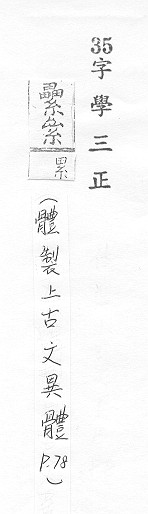 35字學三正
纍絫
累
(體製上古文異體 P.78)